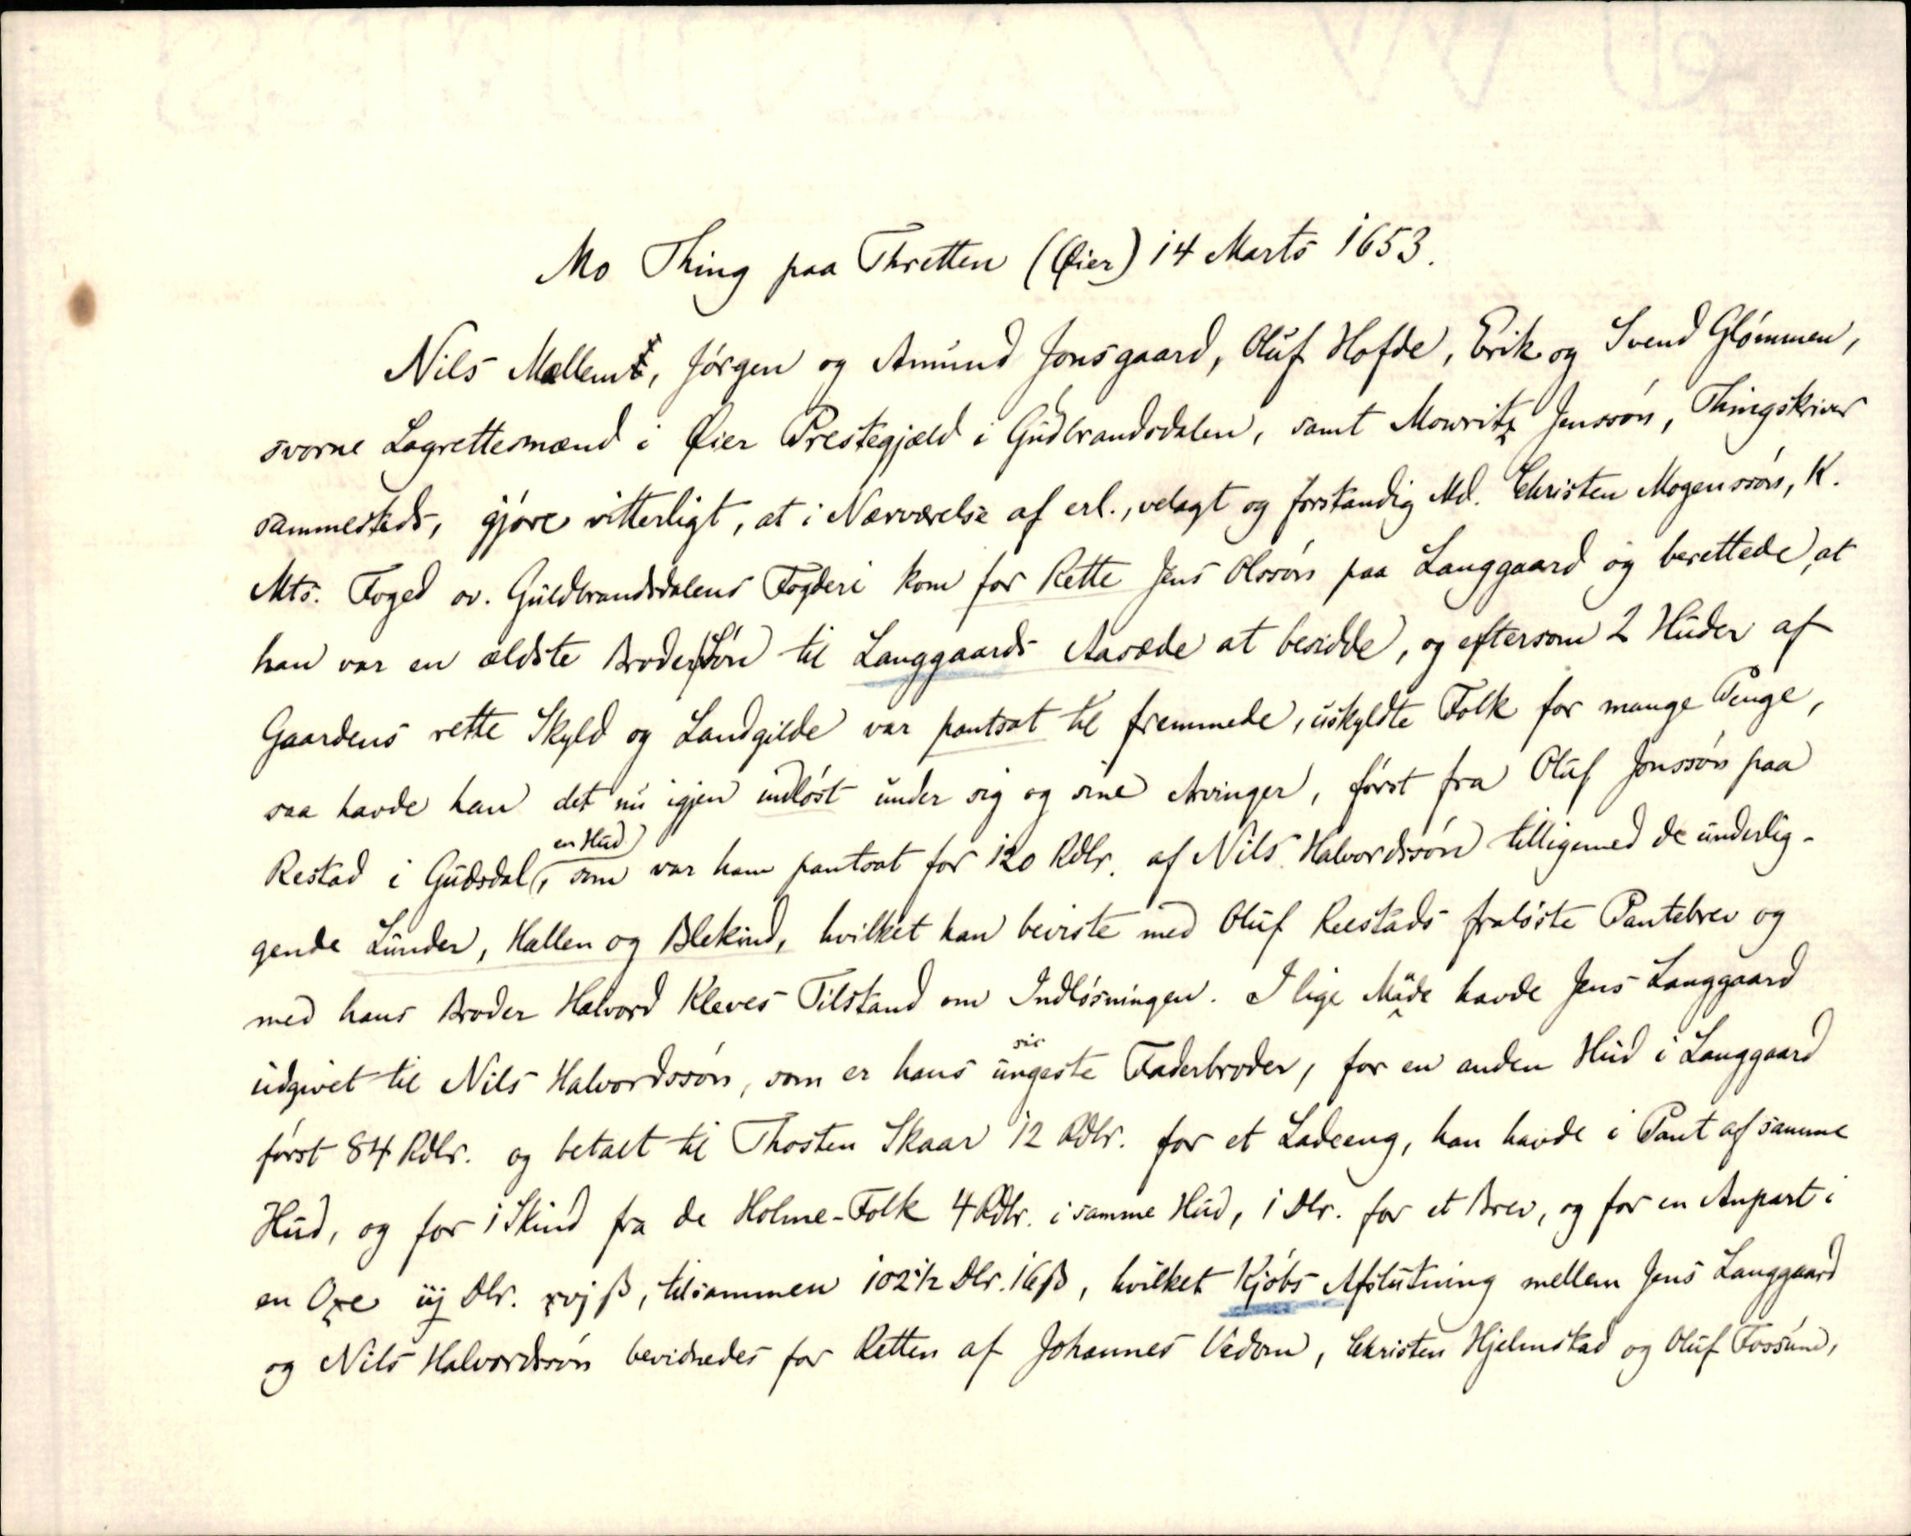 Mo Thing paa Thretten (Øier) 14 Marts 1653.
Nils Mællem, Jørgen og Amund Jonsgaard, Oluf Hofde, Erik og Svend Glømmen,
svorne Lagrettesmænd i Øier Prestegjæld i Gudbrandsdalen, samt Mowritz Jenssøn, Thingskriver
sammesteds, gjøre vitterligt, at i Nærværelse af erl., velagt og forstandig Md. Christen Mogenssøn, K.
Mts. Foged ov. Guldbrandsdalens Fogderi kom for Rette Jens Olssøn paa Langgaard og berettede, at
han var en ældste Broder Søn til Langgaards Aasæde at besidde, og eftersom 2 Huder af
Gaardens rette Skyld og Landgilde var pantsat til fremmede, uskyldte Folk for mange Penge,
saa havde han det nu igjen indløst under sig og sine Arvinger, først fra Oluf Jonssøn paa
en Hud
Restad i Gudsdal, som var ham pantsat for 120 Rdlr. af Nils Halvordssøn tilligemed de underlig-
gende Lunder, Hallen og Blekind, hvilket han beviste med Oluf Reestads fraløste Pantebrev og
med hans Broder Halvord Kleves Tilstand om Indløsningen. I lige Måde havde Jens Langgaard
sic
udgivet til Nils Halvordssøn, som er hans ungeste Faderbroder, for en anden Hud i Langgaard
først 84 Rdlr. og betalt til Thosten Skaar 12 Rdlr. for et Ladeeng, han havde i Pant af samme
Hud, og for 1 Skind fra de Holme-Folk 4 Rdlr. i samme Hud, 1 Dlr. for et Brev, og for en Anpart i
en Oxe iij Dlr. xvj ß, tilsammen 102½ Dlr. 16ß, hvilket Kjøbs Afslutning mellem Jens Langgaard
og Nils Halvordssøn bevidnedes for Retten af Johannes Vedom, Christen Hjelmstad og Oluf Fossum,